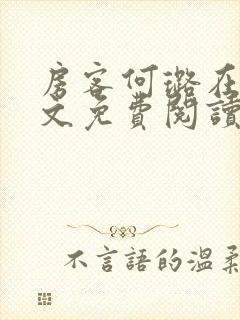 房客何璐在
文免費閱讀
不言語的溫柔